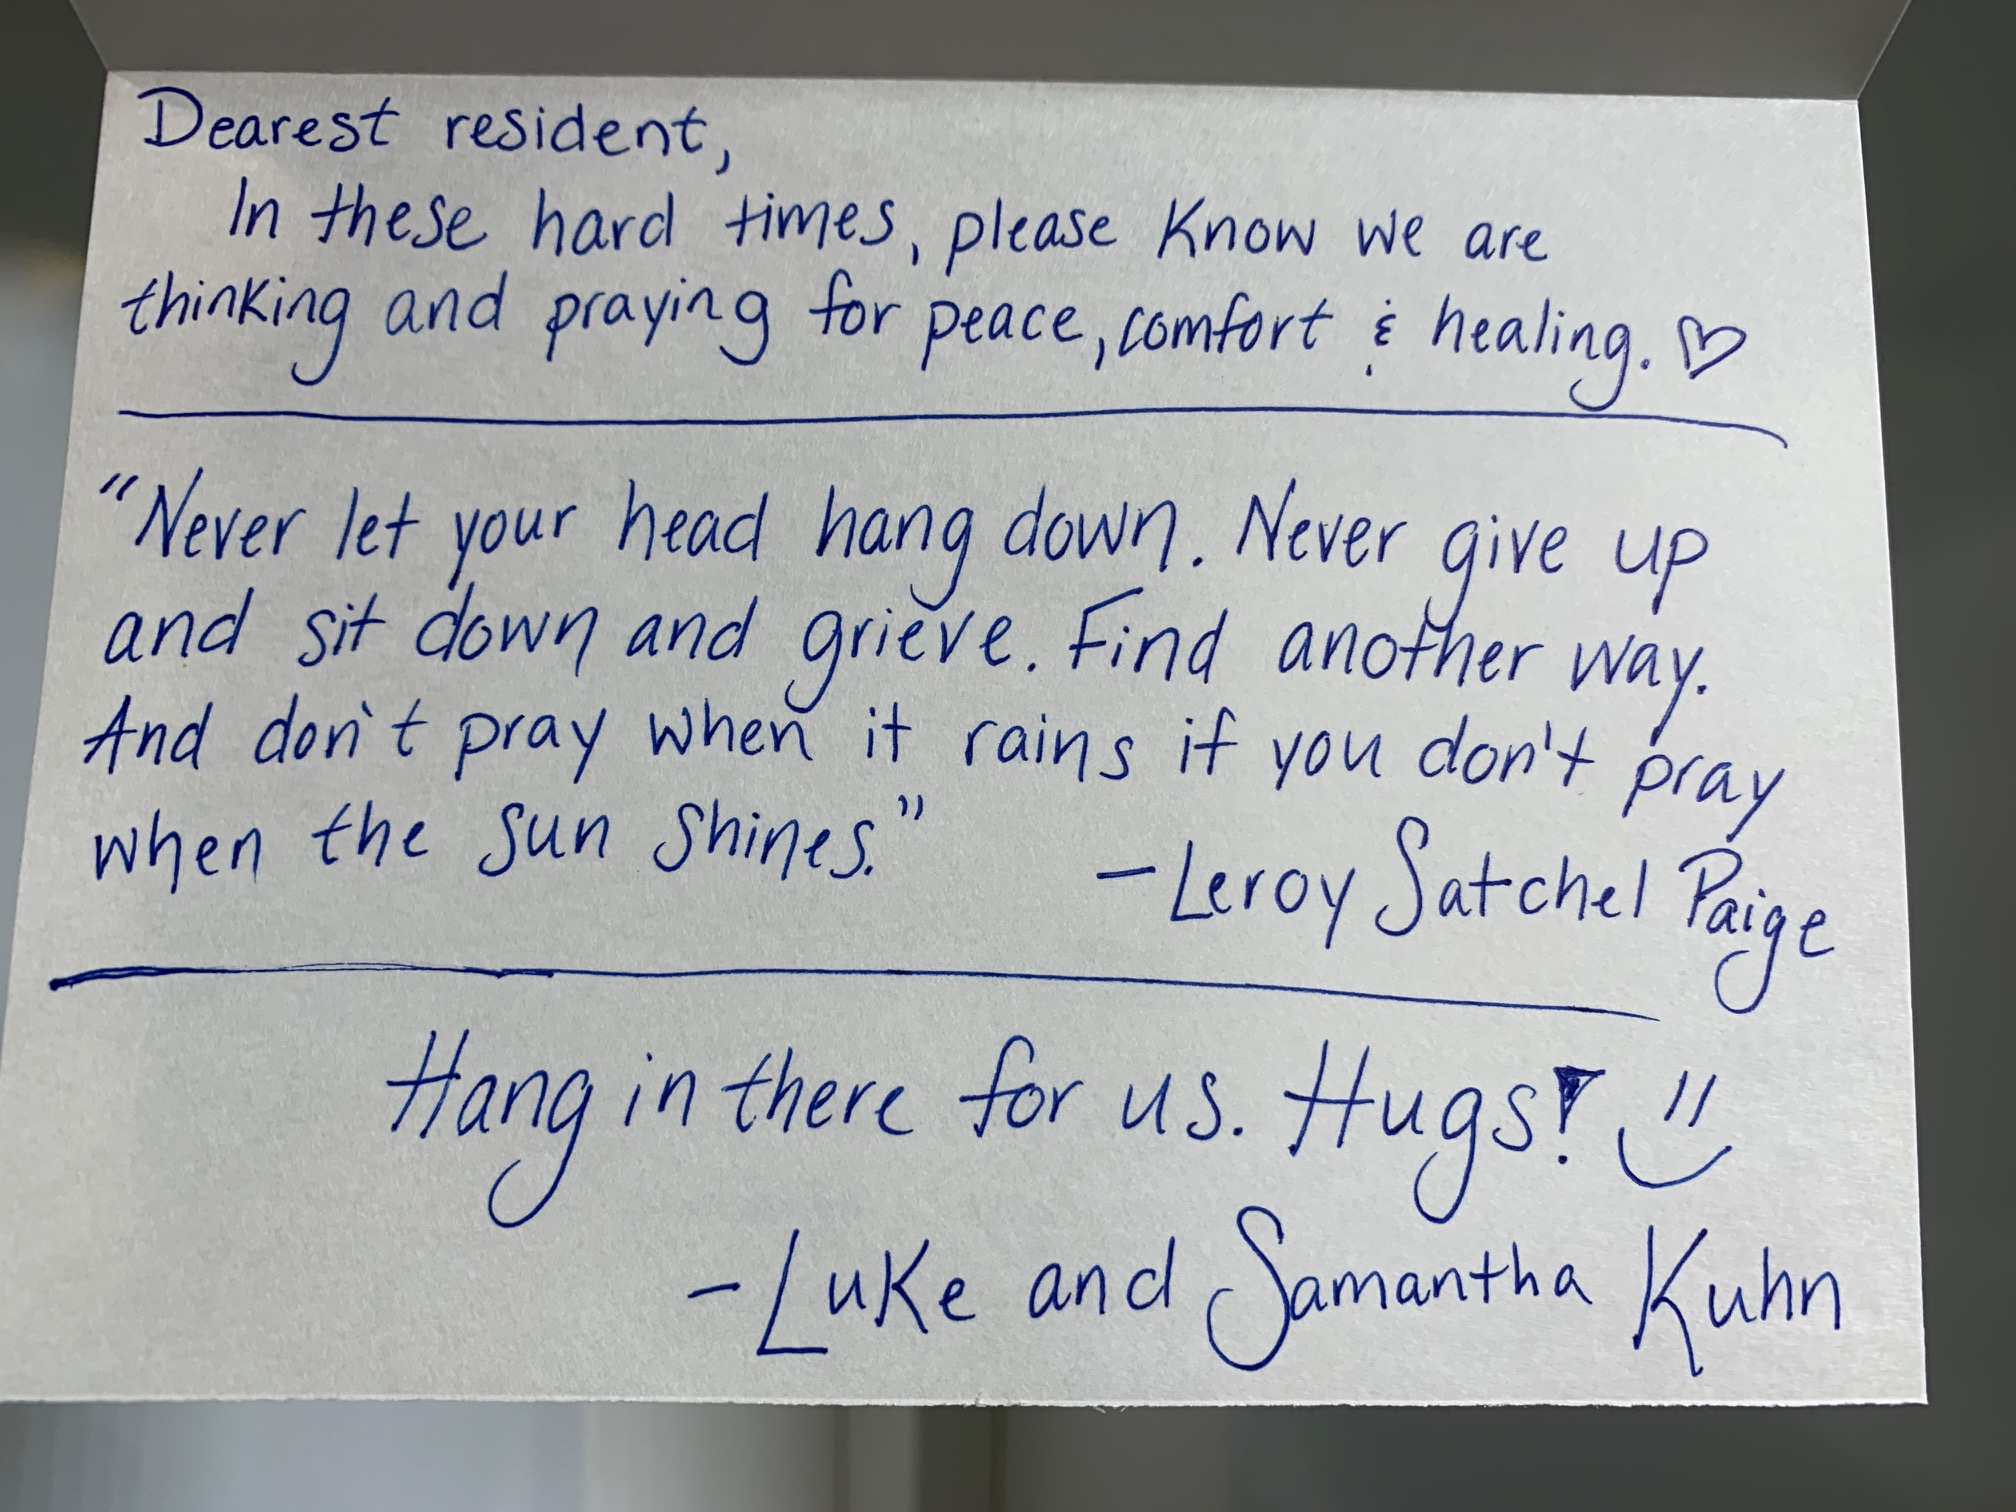 Dearest resident,
In these hard times, please know we are
thinking and praying for peace, comfort & healing. ♡
"Never let your head hang down. Never give up
and sit down and grieve. Find another way.
And don't pray when it rains if you don't pray
when the sun shines."
- Leroy Satchel Paige
Hang in there for us. Hugs!
- Luke and Samantha Kuhn